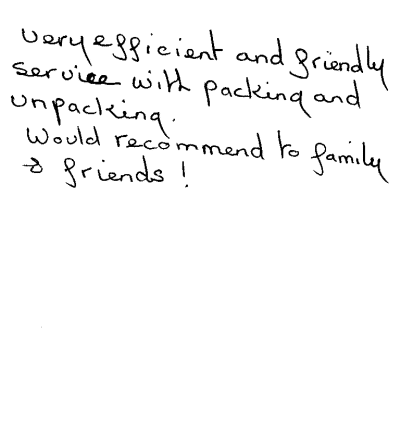 very efficient and friendly
service with packing and
unpacking.
Would recommend to family
& friends!